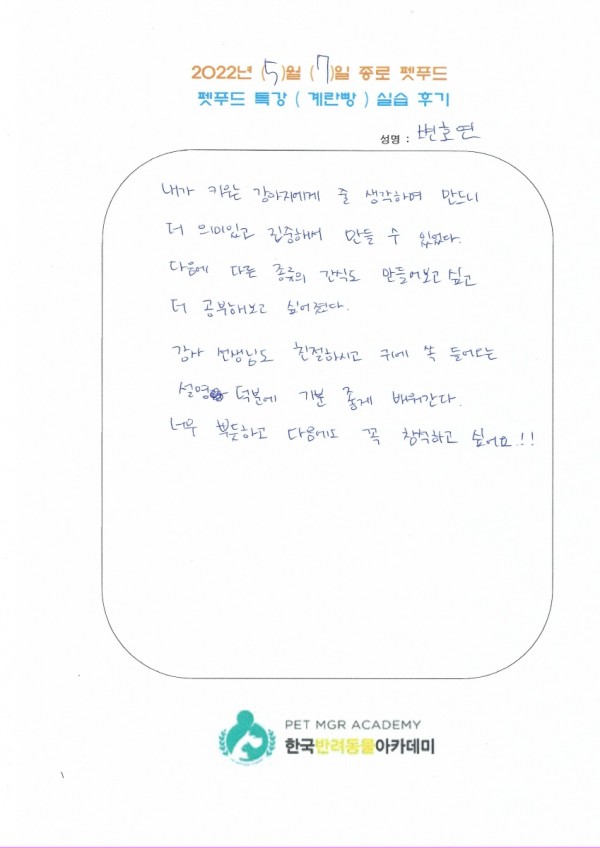 2022년 (5)월 (7)일 종로 펫푸드
펫푸드 특강 ( 계란빵 ) 실습 후기
성명 : 변호연
내가 키우는 강아지에게 줄 생각하며 만드니
더 의미있고 집중해서 만들 수 있었다.
다음에 다른 종류의 간식도 만들어보고 싶고
더 공부해보고 싶어졌다.
강사 선생님도 친절하시고 귀에 쏙 들어오는
설명 덕분에 기분 좋게 배워간다.
너무 뿌듯하고 다음에도 꼭 참석하고 싶어요!!
PET MGR ACADEMY
한국반려동물아카데미